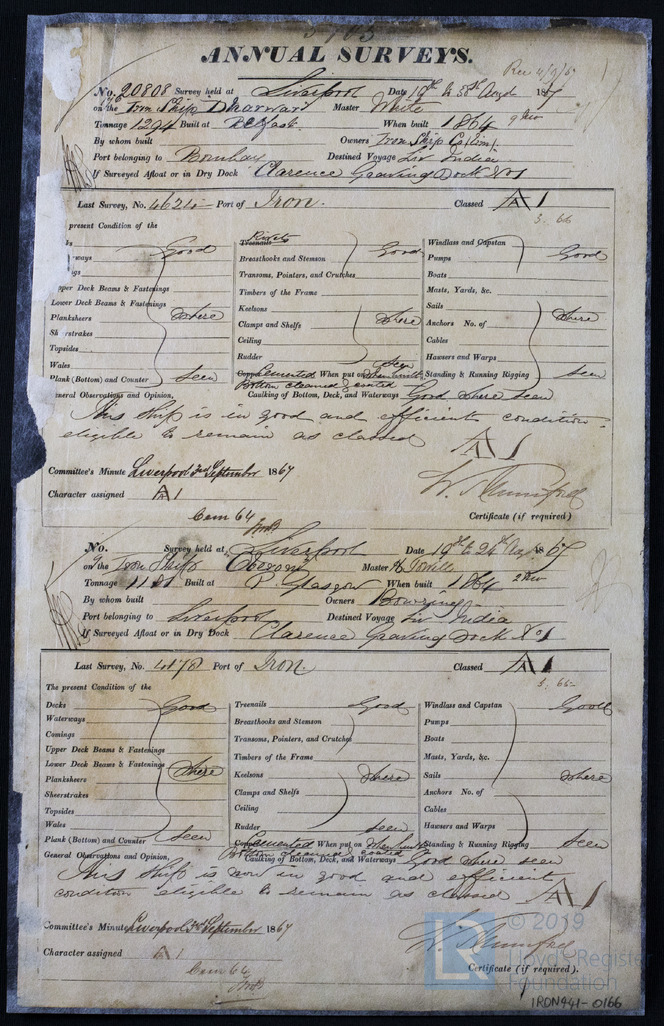 5765
ANNUAL SURVEYS.
No. 20808 Survey held at Liverpool Date 19th to 30th Augt 1867
on the Iron Ship Dharwar Master White
Tonnage 1294 Built at Belfast When built 1864
By whom built Owners Iron Ship Co (Lim)
Port belonging to Bombay Destined Voyage Liv India
If Surveyed Afloat or in Dry Dock Clarence Graving Dock No 1
Last Survey, No. 4624 Port of Iron. Classed A 1
3. 66
present Condition of the
Rivets
Good Treenails Good Windlass and Capstan Good
Breasthooks and Stemson Pumps
Transoms, Pointers, and Crutches Boats
pper Deck Beams & Fastenings Timbers of the Frame Masts, Yards, &c.
Lower Deck Beams & Fastenings Keelsons Sails
Planksheers where Clamps and Shelfs where Anchors No. of where
Sh rstrakes Ceiling Cables
Topsides Rudder seen Hawsers and Warps
Wales
Plank (Bottom) and Counter seen Cemented When put on When built Standing & Running Rigging seen
Bottom cleaned & coated
neral Observations and Opinion, Caulking of Bottom, Deck, and Waterways Good where seen
This Ship is in good and efficient condition
eligible to remain as classed A 1
Committee's Minute Liverpool 3rd September 1867
Character assigned A 1 W. Mumford
Cem 64
Certificate (if required)
No. Survey held at Liverpool Date 19th to 24th Aug 1867
on the Iron Ship Oberon Master
Tonnage 1181 Built at P. Glasgow When built 1864
By whom built Owners Bowring
Port belonging to Liverpool Destined Voyage Liv India
If Surveyed Afloat or in Dry Dock Clarence Graving Dock No 1
Last Survey, No. 4178 Port of Iron Classed A 1
3. 66
The present Condition of the
Decks Good Treenails Good Windlass and Capstan Good
Waterways Breasthooks and Stemson Pumps
Comings Transoms, Pointers, and Crutches Boats
Upper Deck Beams & Fastenings Timbers of the Frame Masts, Yards, &c.
Lower Deck Beams & Fastenings where Keelsons where Sails where
Planksheers Clamps and Shelfs Anchors No. of
Sheerstrakes Ceiling Cables
Topsides Rudder seen Hawsers and Warps
Wales
Plank (Bottom) and Counter seen Cemented When put on When built Standing & Running Rigging seen
Bottom cleaned & coated
General Observations and Opinion, Caulking of Bottom, Deck, and Waterways Good where seen
This Ship is now in good and efficient
condition eligible to remain as classed A 1
Committee's Minute Liverpool 3rd September 1867
Character assigned A 1 W. Mumford
Cem 64
Certificate (if required).
LR
© 2019
Lloyd's Register
Foundation
IRON441-0166